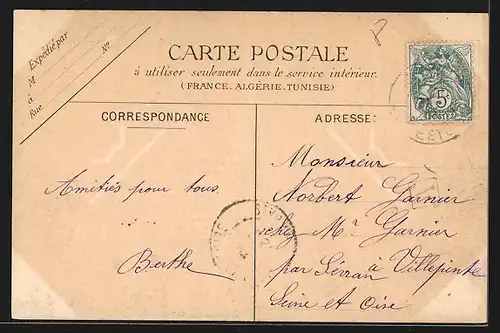 Expédié par
M
à
Rue
N°
CARTE POSTALE
à utiliser seulement dans le service intérieur.
(FRANCE-ALGERIE-TUNISIE)
CORRESPONDANCE
ADRESSE:
5
Amitiés pour tous
Berthe
Monsieur
Norbert Garnier
chez Mr Garnier
par Sévran à Villepinte
Seine et Oise